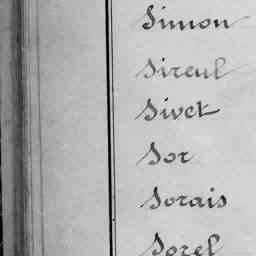 Simon
Sireul
Sivet
Sor
Sorais
Sorel